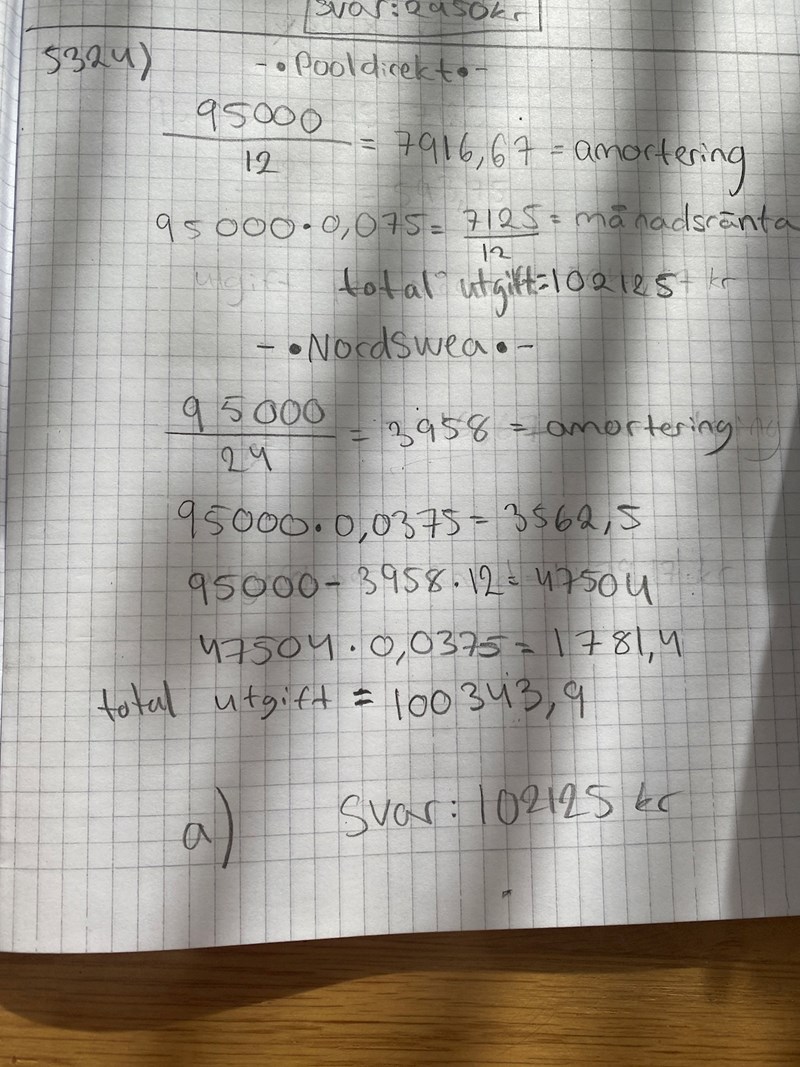 svar: 2450kr
5324)
-•Pooldirekt•-
95000
12
= 7916,67 = amortering
95000•0,075= 7125 = månadsränta
12
total utgift=102125 kr
-•Nordswea•-
95000
24
= 3958 = amortering
95000•0,0375= 3562,5
95000-3958•12= 47504
47504•0,0375=1781,4
total utgift = 100343,9
a) Svar: 102125 kr